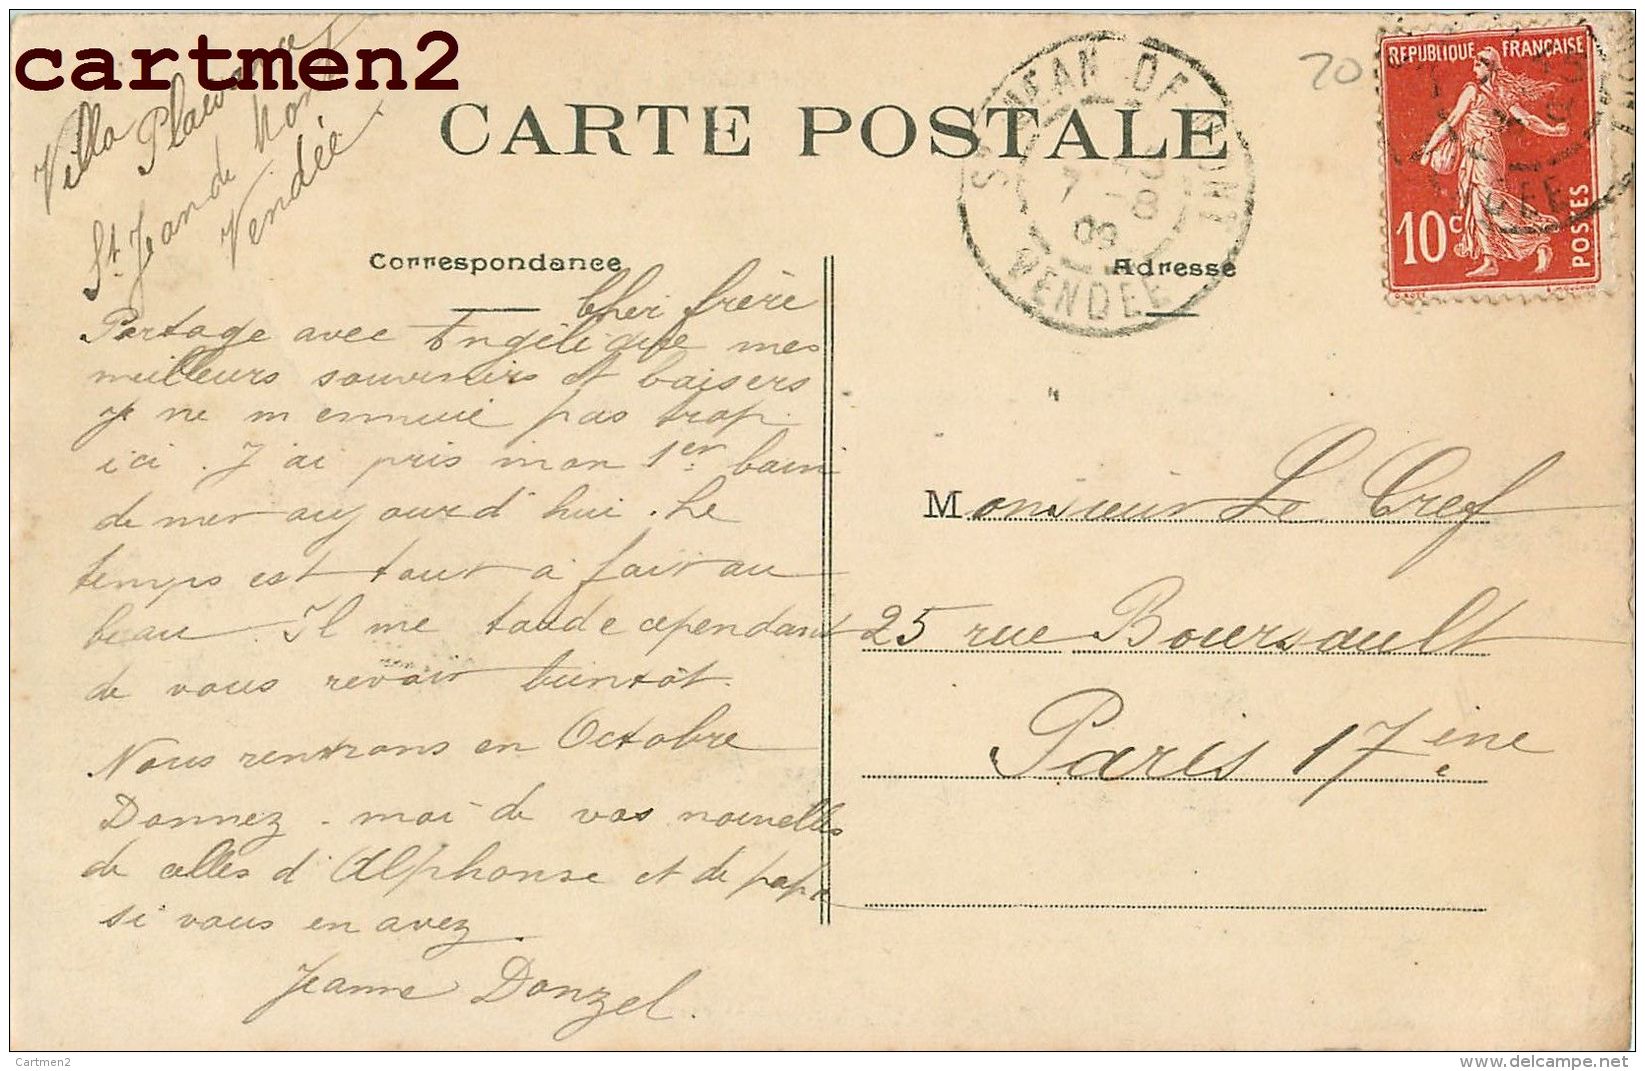 cartmen2
Villa
Plaisance
St. Jean de Mont
Vendée
CARTE POSTALE
20
ST JEAN DE MONT
7 -8
09
VENDÉE
REPUBLIQUE FRANÇAISE
10c
POSTES
Correspondance
Adresse
Cher frère
Partage avec Angélique mes
meilleurs souvenirs et baisers
Je ne m'ennuie pas trop
ici. J'ai pris mon 1er bain
de mer aujourd'hui. Le
temps est tout à fait au
beau. Il me tarde cependant
de vous revoir bientôt.
Nous rentrons en Octobre
Donnez-moi de vos nouvelles
de celles d'Alphonse et de papa
si vous en avez.
Jeanne Donzel.
Monsieur Le Cref
25 rue Boursault
Paris 17ème
Cartmen2
www.delcampe.net